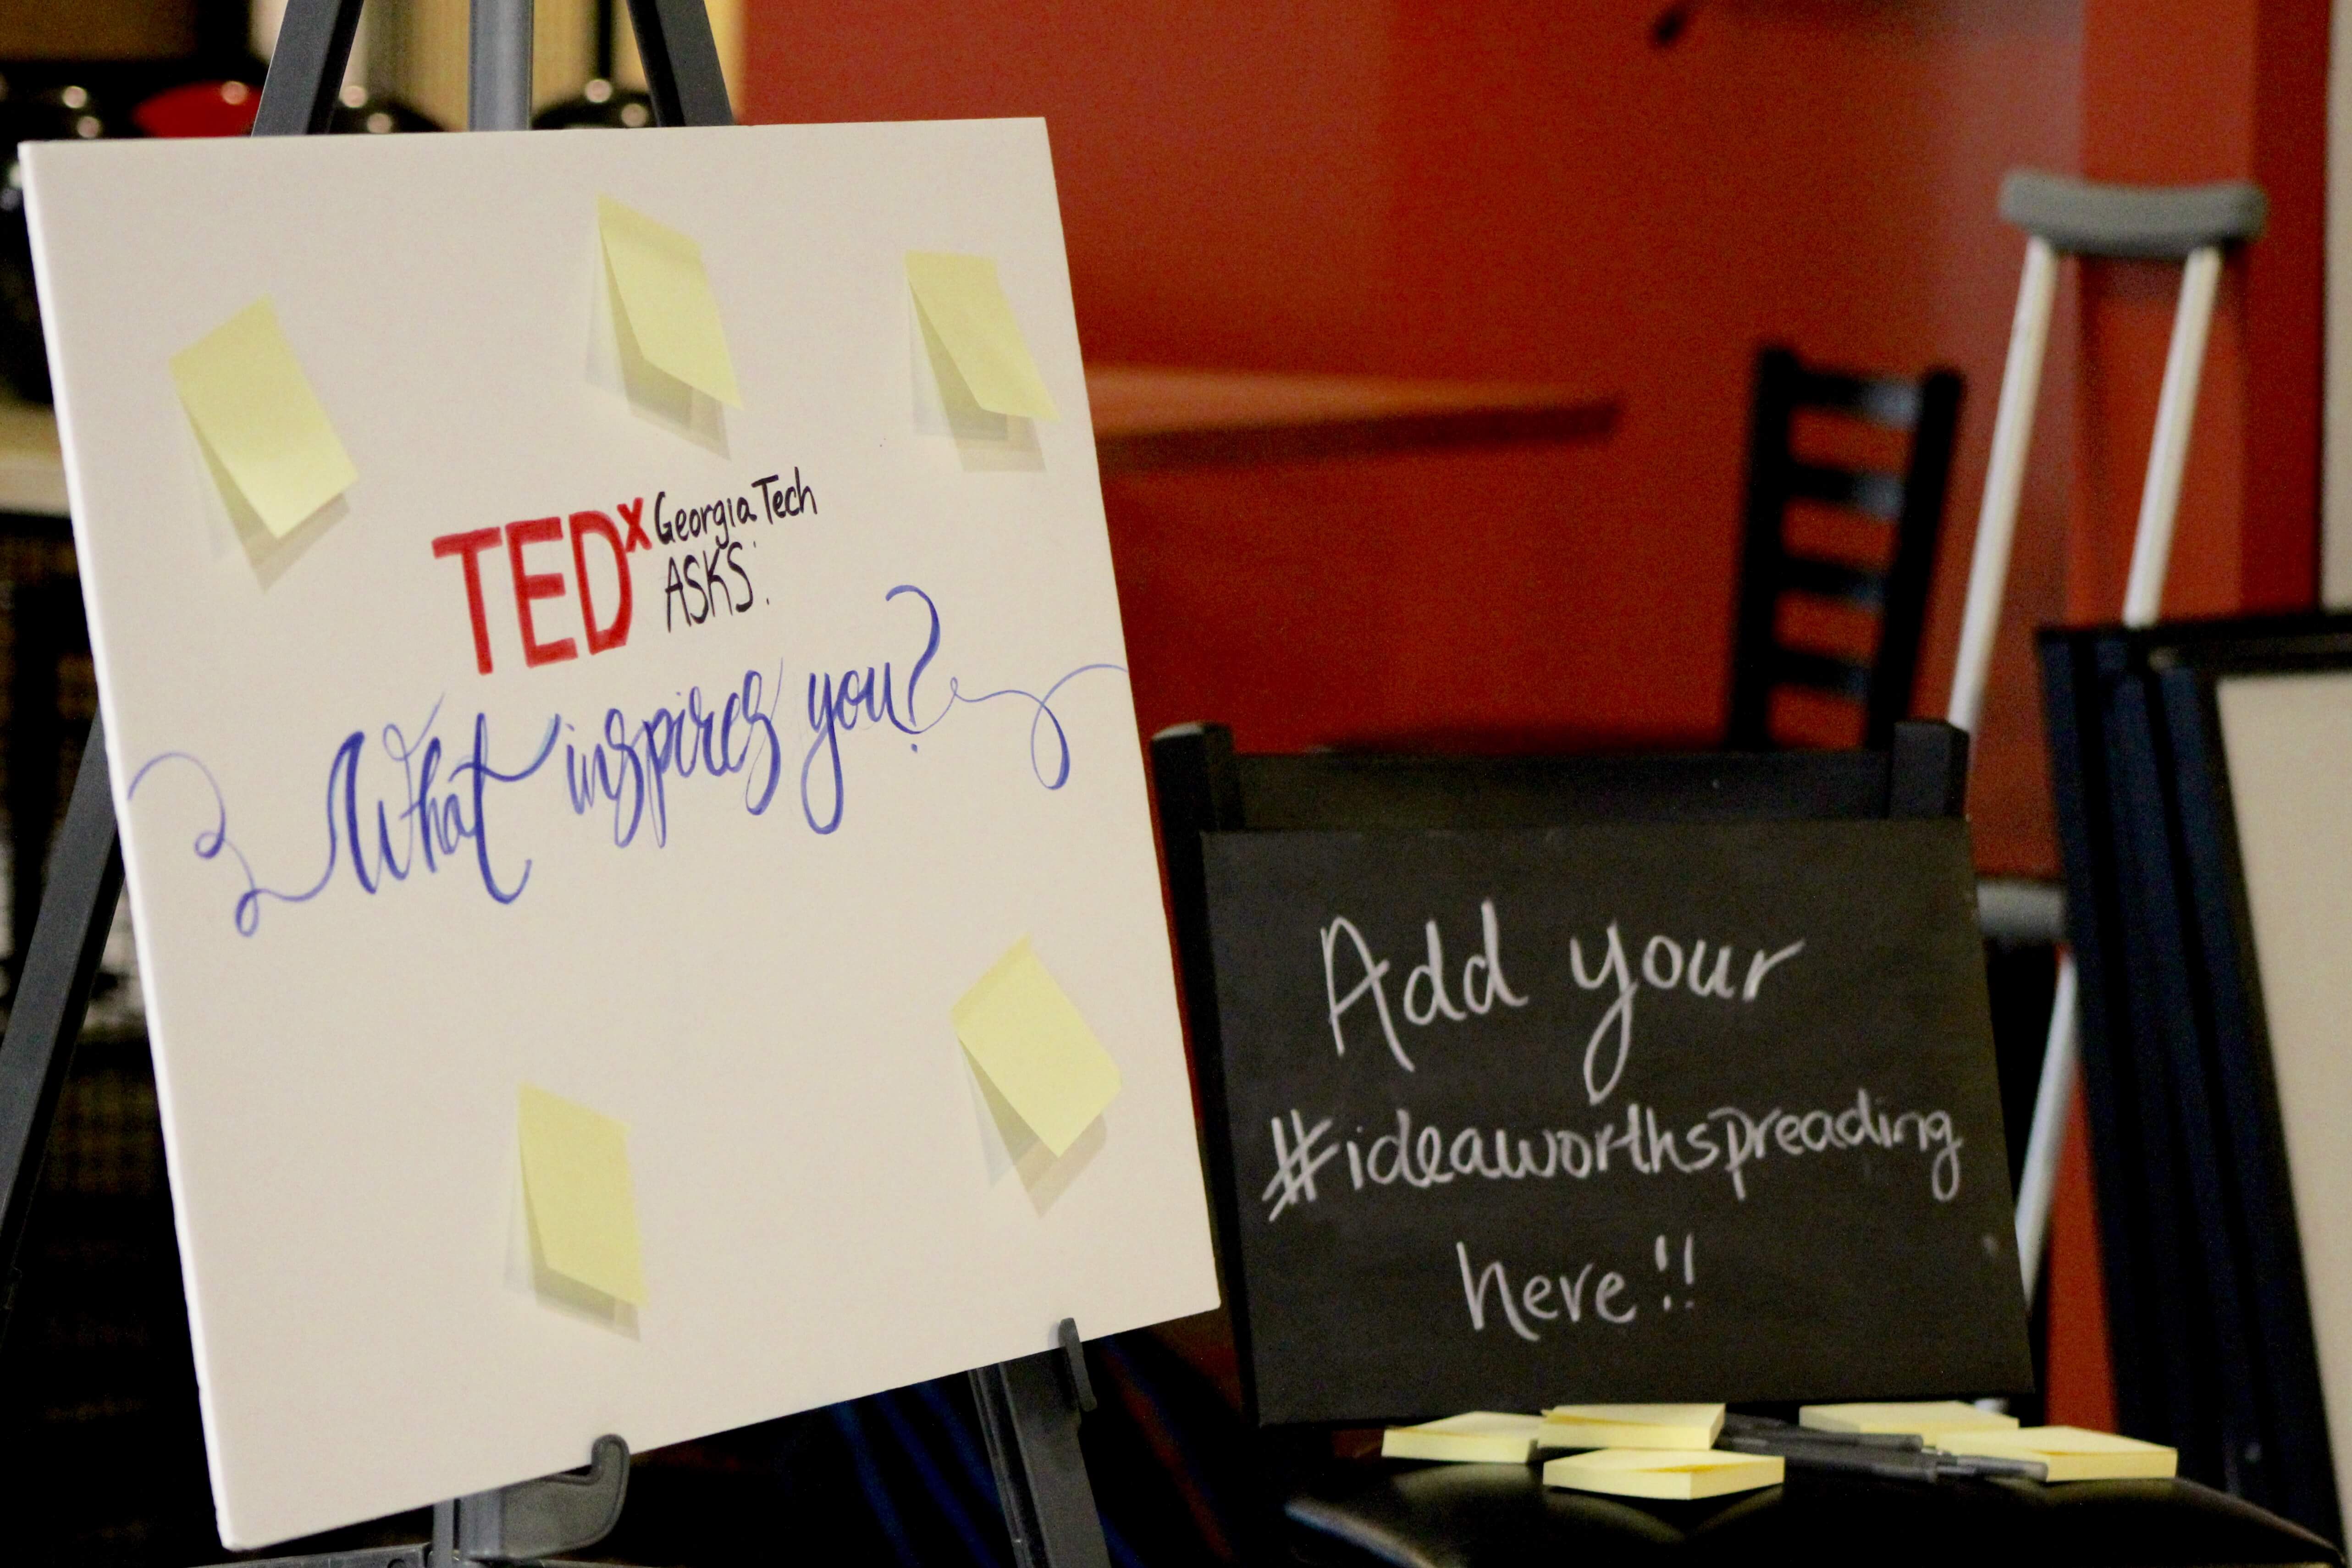 TEDx Georgia Tech
ASKS:
What inspires you?
Add your
#ideaworthspreading
here!!